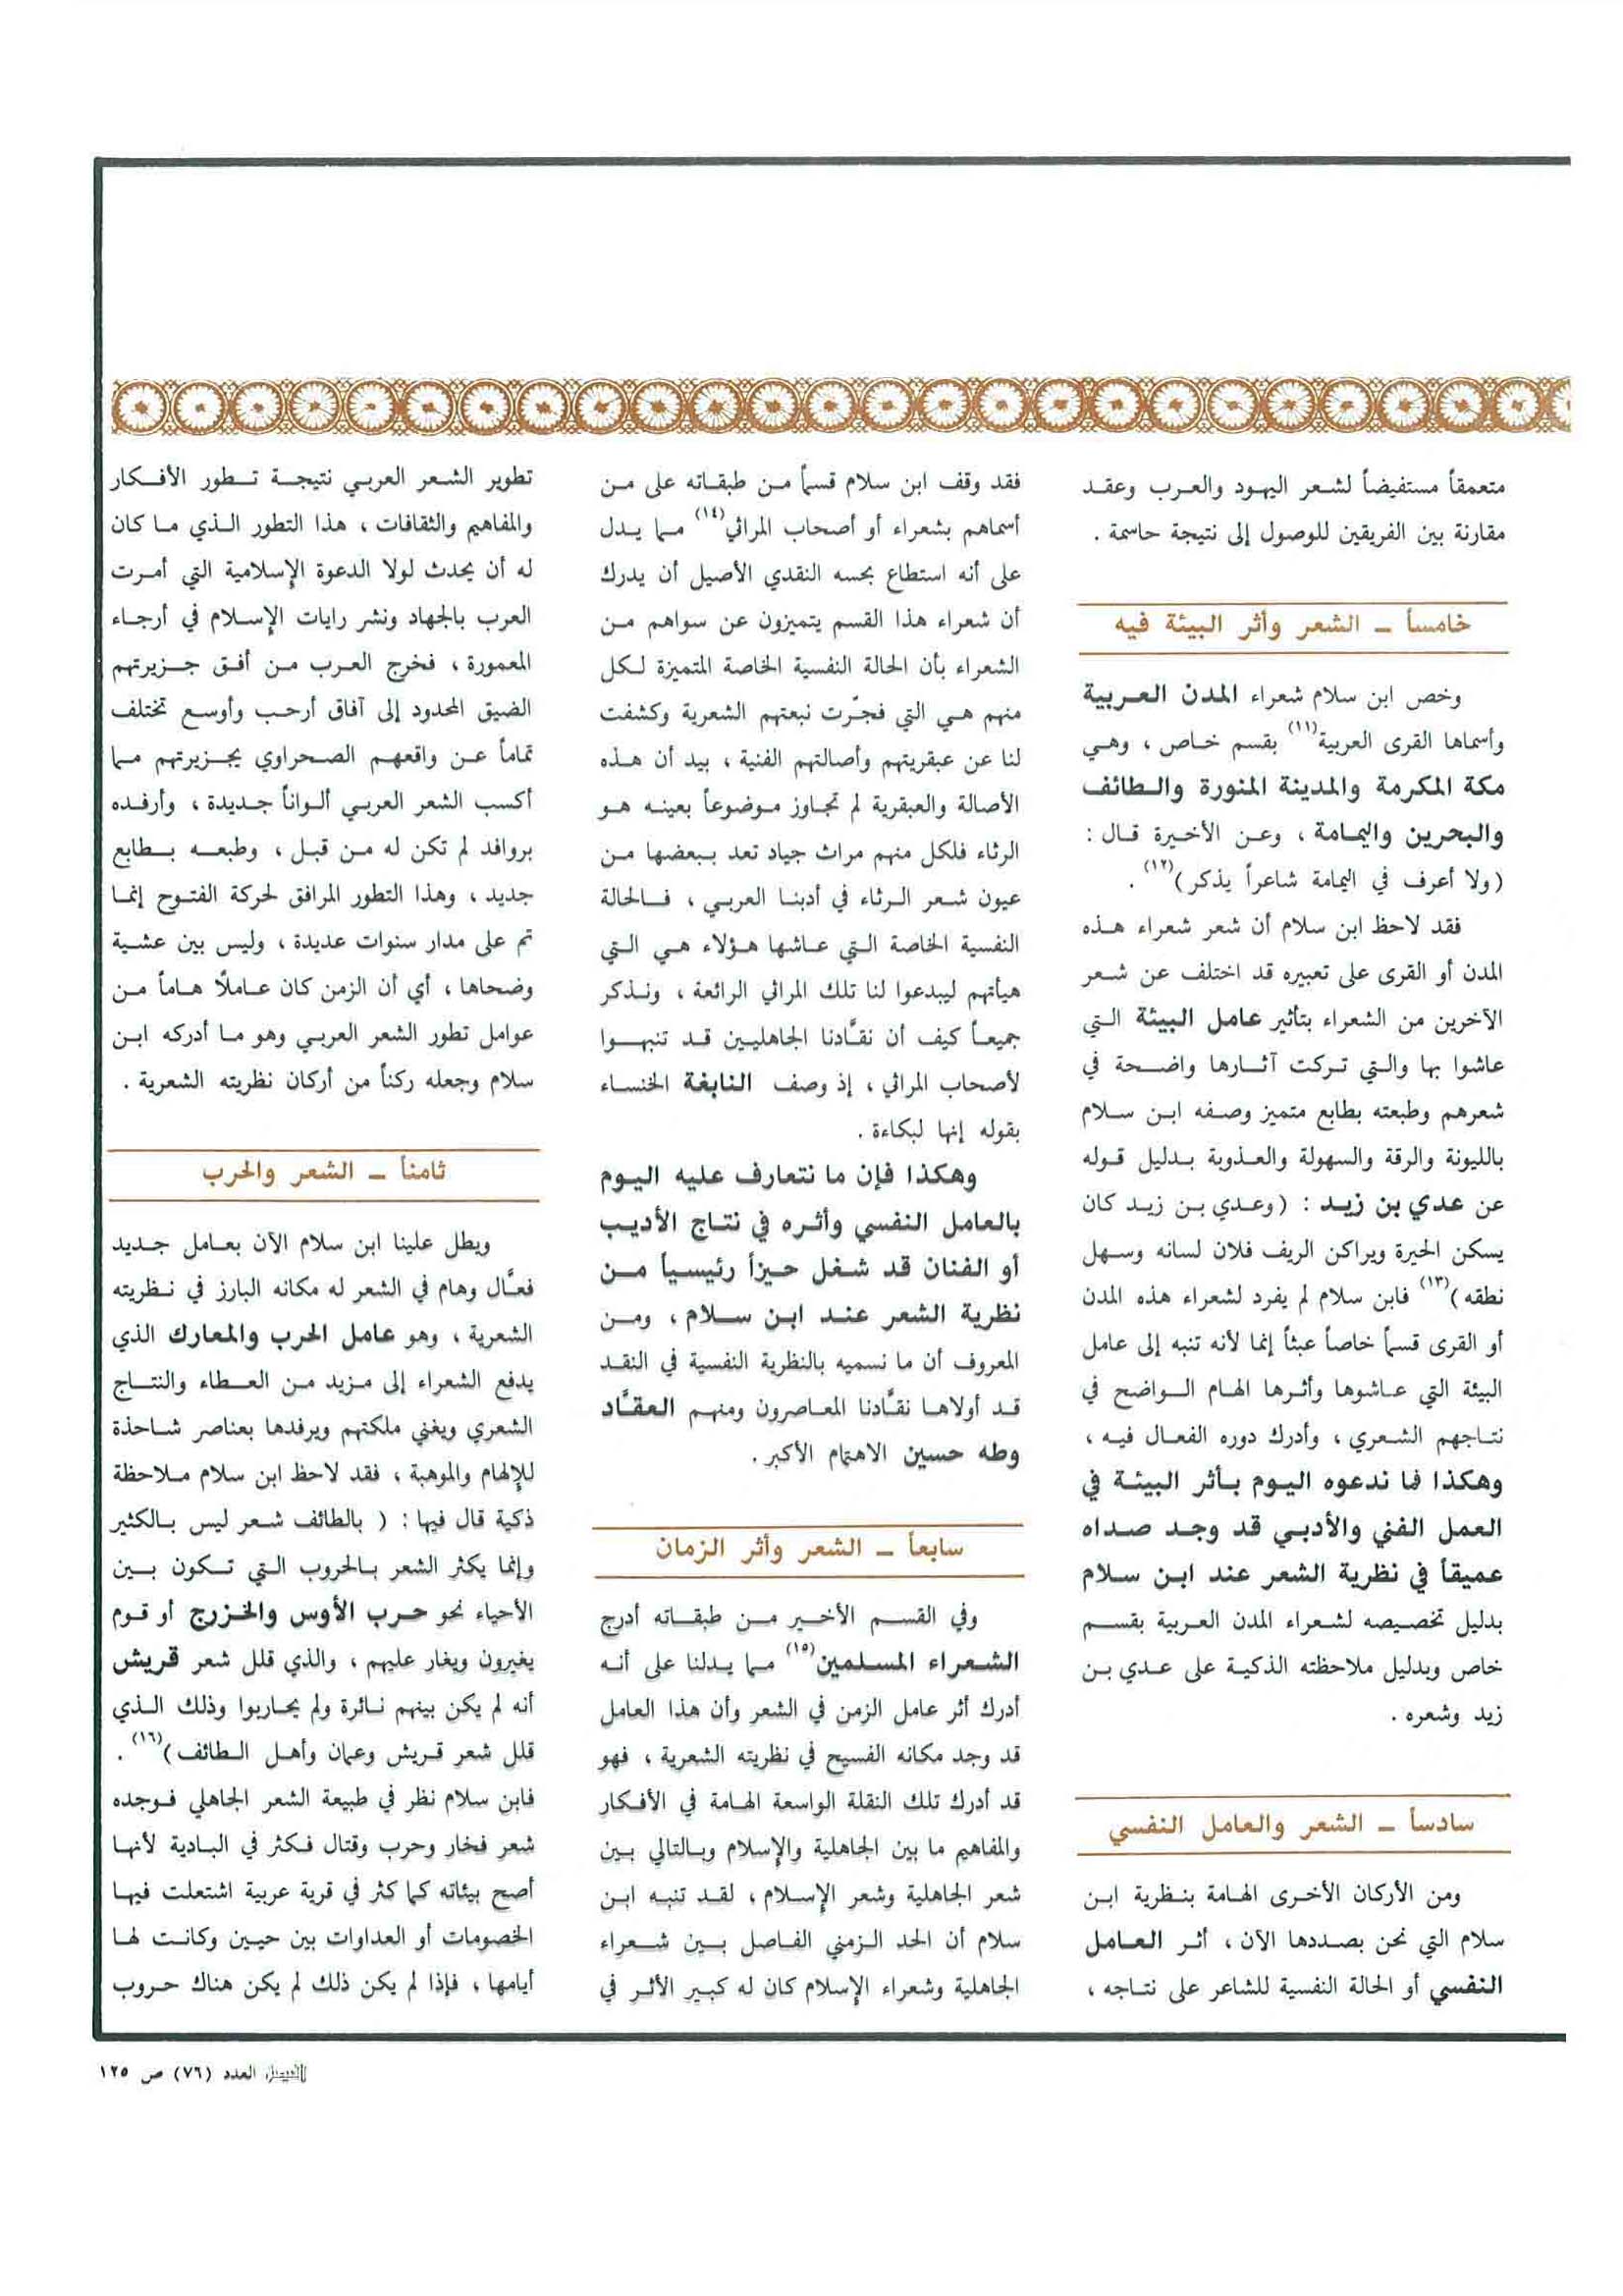 متعمقاً مستفيضاً لشعر اليهود والعرب وعقد
مقارنة بين الفريقين للوصول إلى نتيجة حاسمة .
خامساً ـ الشعر وأثر البيئة فيه
وخص ابن سلام شعراء المدن العربية
وأسماها القرى العربية(١١) بقسم خاص ، وهي
مكة المكرمة والمدينة المنورة والطائف
والبحرين واليمامة ، وعن الأخيرة قال :
(ولا أعرف في اليمامة شاعراً يذكر)(١٢) .
فقد لاحظ ابن سلام أن شعر شعراء هذه
المدن أو القرى على تعبيره قد اختلف عن شعر
الآخرين من الشعراء بتأثير عامل البيئة التي
عاشوا بها والتي تركت آثارها واضحة في
شعرهم وطبعته بطابع متميز وصفه ابن سلام
بالليونة والرقة والسهولة والعذوبة بدليل قوله
عن عدي بن زيد : (وعدي بن زيد كان
يسكن الحيرة ويراكن الريف فلان لسانه وسهل
نطقه)(١٣) فابن سلام لم يفرد لشعراء هذه المدن
أو القرى قسماً خاصاً عبثاً إنما لأنه تنبه إلى عامل
البيئة التي عاشوها وأثرها الهام الواضح في
نتاجهم الشعري ، وأدرك دوره الفعال فيه ،
وهكذا فما ندعوه اليوم بأثر البيئة في
العمل الفني والأدبي قد وجد صداه
عميقاً في نظرية الشعر عند ابن سلام
بدليل تخصيصه لشعراء المدن العربية بقسم
خاص وبدليل ملاحظته الذكية على عدي بن
زيد وشعره .
سادساً ـ الشعر والعامل النفسي
ومن الأركان الأخرى الهامة بنظرية ابن
سلام التي نحن بصددها الآن ، أثر العامل
النفسي أو الحالة النفسية للشاعر على نتاجه ،
فقد وقف ابن سلام قسماً من طبقاته على من
أسماهم بشعراء أو أصحاب المراثي(١٤) مما يدل
على أنه استطاع بحسه النقدي الأصيل أن يدرك
أن شعراء هذا القسم يتميزون عن سواهم من
الشعراء بأن الحالة النفسية الخاصة المتميزة لكل
منهم هي التي فجّرت نبعتهم الشعرية وكشفت
لنا عن عبقريتهم وأصالتهم الفنية ، بيد أن هذه
الأصالة والعبقرية لم تجاوز موضوعاً بعينه هو
الرثاء فلكل منهم مراث جياد تعد ببعضها من
عيون شعر الرثاء في أدبنا العربي ، فالحالة
النفسية الخاصة التي عاشها هؤلاء هي التي
هيأتهم ليبدعوا لنا تلك المراثي الرائعة ، ونذكر
جميعاً كيف أن نقَّادنا الجاهليين قد تنبهوا
لأصحاب المراثي ، إذ وصف النابغة الخنساء
بقوله إنها لبكاءة .
وهكذا فإن ما نتعارف عليه اليوم
بالعامل النفسي وأثره في نتاج الأديب
أو الفنان قد شغل حيزاً رئيسياً من
نظرية الشعر عند ابن سلام ، ومن
المعروف أن ما نسميه بالنظرية النفسية في النقد
قد أولاها نقَّادنا المعاصرون ومنهم العقَّاد
وطه حسين الاهتمام الأكبر .
سابعاً ـ الشعر وأثر الزمان
وفي القسم الأخير من طبقاته أدرج
الشعراء المسلمين(١٥) مما يدلنا على أنه
أدرك أثر عامل الزمن في الشعر وأن هذا العامل
قد وجد مكانه الفسيح في نظريته الشعرية ، فهو
قد أدرك تلك النقلة الواسعة الهامة في الأفكار
والمفاهيم ما بين الجاهلية والإسلام وبالتالي بين
شعر الجاهلية وشعر الإسلام ، لقد تنبه ابن
سلام أن الحد الزمني الفاصل بين شعراء
الجاهلية وشعراء الإسلام كان له كبير الأثر في
تطوير الشعر العربي نتيجة تطور الأفكار
والمفاهيم والثقافات ، هذا التطور الذي ما كان
له أن يحدث لولا الدعوة الإسلامية التي أمرت
العرب بالجهاد ونشر رايات الإسلام في أرجاء
المعمورة ، فخرج العرب من أفق جزيرتهم
الضيق المحدود إلى آفاق أرحب وأوسع تختلف
تماماً عن واقعهم الصحراوي بجزيرتهم مما
أكسب الشعر العربي ألواناً جديدة ، وأرفده
بروافد لم تكن له من قبل ، وطبعه بطابع
جديد ، وهذا التطور المرافق لحركة الفتوح إنما
تم على مدار سنوات عديدة ، وليس بين عشية
وضحاها ، أي أن الزمن كان عاملاً هاماً من
عوامل تطور الشعر العربي وهو ما أدركه ابن
سلام وجعله ركناً من أركان نظريته الشعرية .
ثامناً ـ الشعر والحرب
ويطل علينا ابن سلام الآن بعامل جديد
فعَّال وهام في الشعر له مكانه البارز في نظريته
الشعرية ، وهو عامل الحرب والمعارك الذي
يدفع الشعراء إلى مزيد من العطاء والنتاج
الشعري ويغني ملكتهم ويرفدها بعناصر شاحذة
للإلهام والموهبة ، فقد لاحظ ابن سلام ملاحظة
ذكية قال فيها : ( بالطائف شعر ليس بالكثير
وإنما يكثر الشعر بالحروب التي تكون بين
الأحياء نحو حرب الأوس والخزرج أو قوم
يغيرون ويغار عليهم ، والذي قلل شعر قريش
أنه لم يكن بينهم نائرة ولم يحاربوا وذلك الذي
قلل شعر قريش وعمان وأهل الطائف)(١٦) .
فابن سلام نظر في طبيعة الشعر الجاهلي فوجده
شعر فخار وحرب وقتال فكثر في البادية لأنها
أصح بيئاته كما كثر في قرية عربية اشتعلت فيها
الخصومات أو العداوات بين حيين وكانت لها
أيامها ، فإذا لم يكن ذلك لم يكن هناك حروب
الفيصل العدد (٧٦) ص ١٢٥